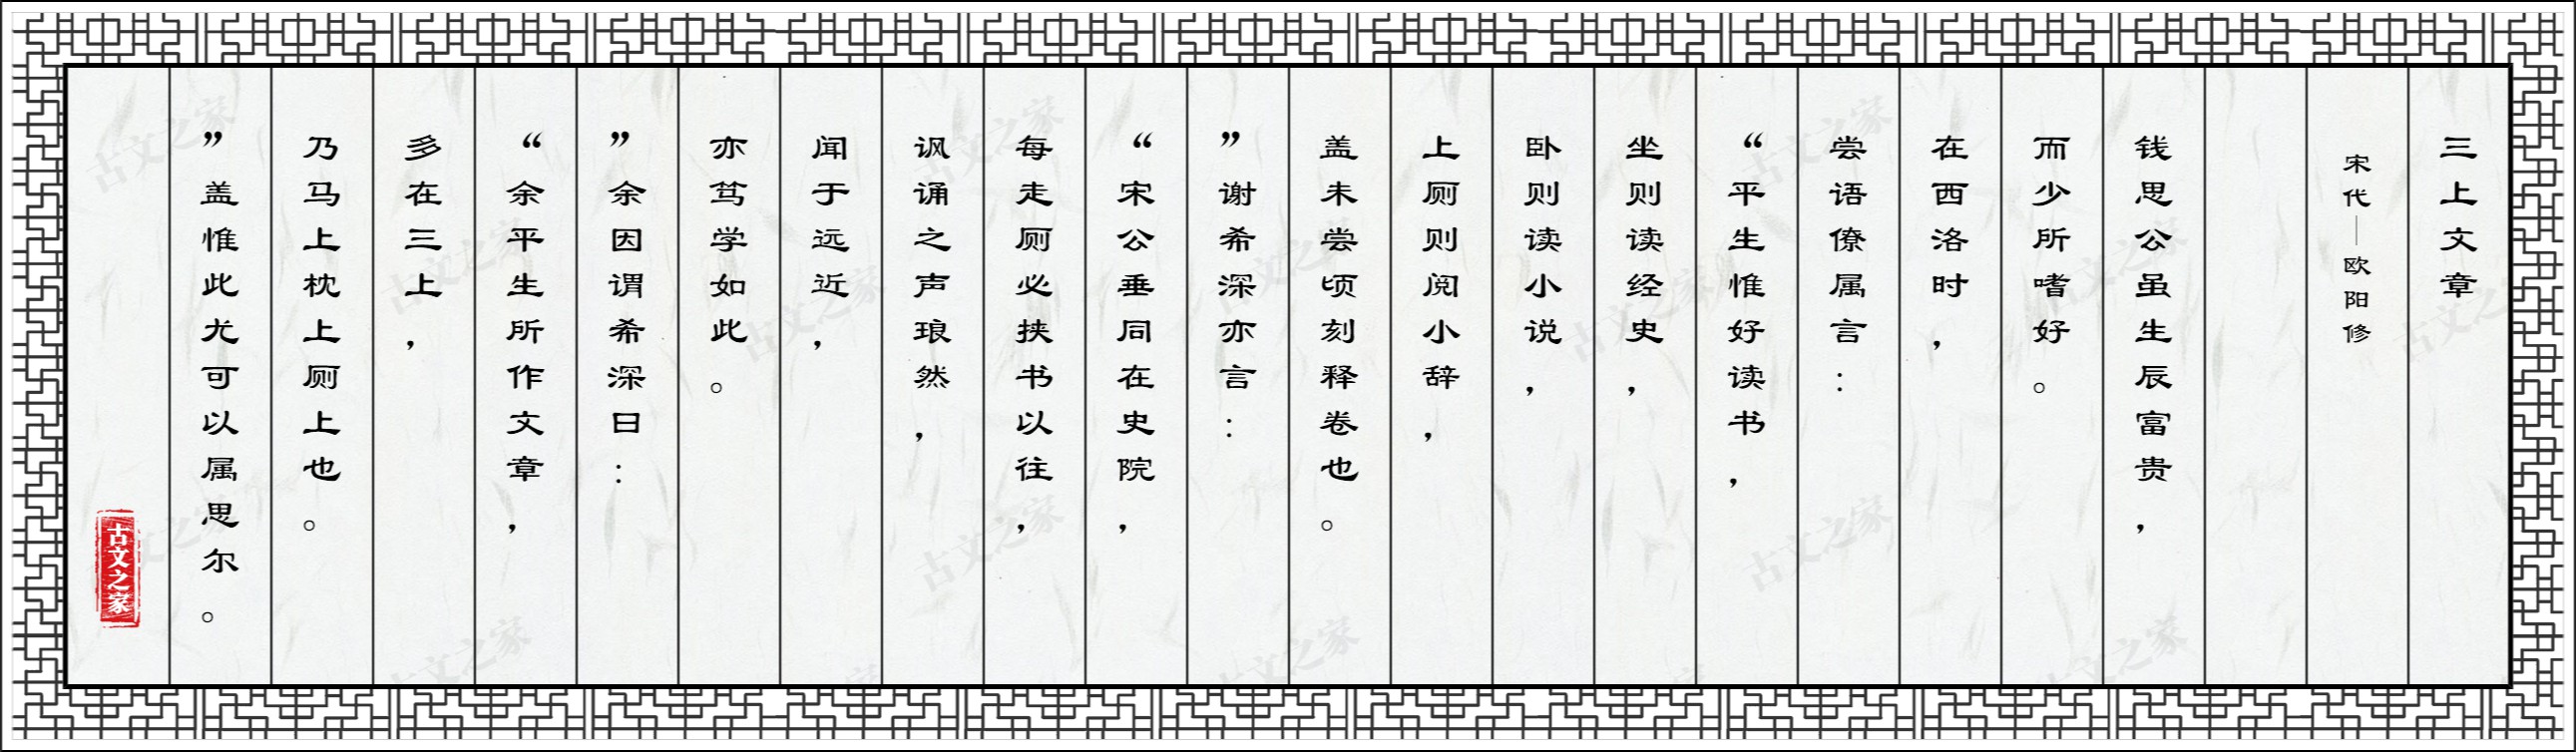 三上文章
宋代—欧阳修
钱思公虽生辰富贵，
而少所嗜好。
在西洛时，
尝语僚属言：
“平生惟好读书，
坐则读经史，
卧则读小说，
上厕则阅小辞，
盖未尝顷刻释卷也。
”谢希深亦言：
“宋公垂同在史院，
每走厕必挟书以往，
讽诵之声琅然，
闻于远近，
亦笃学如此。
”余因谓希深曰：
“余平生所作文章，
多在三上，
乃马上枕上厕上也。
”盖惟此尤可以属思尔。
古文之家